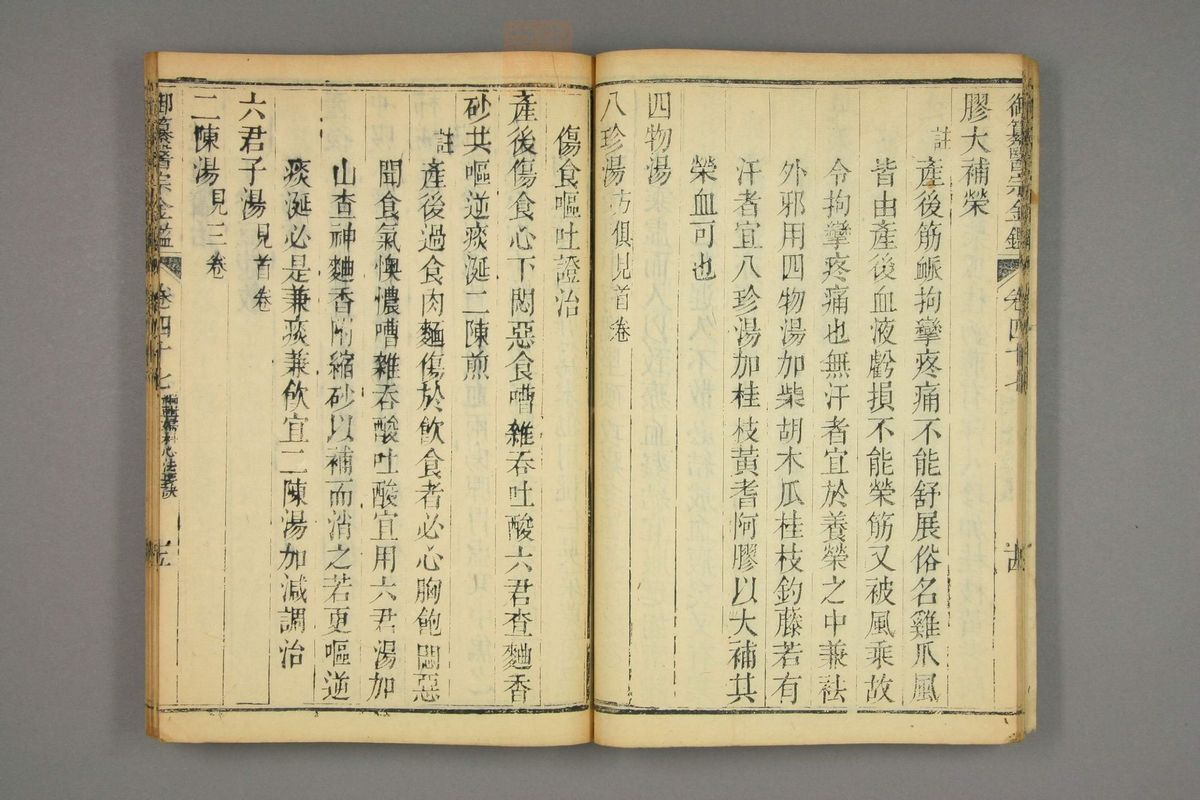 御纂醫宗金鑑 卷四十七
膠大補榮
註 產後筋脈拘攣疼痛不能舒展俗名雞爪風
皆由產後血液虧損不能榮筋又被風乘故
令拘攣疼痛也無汗者宜於養榮之中兼祛
外邪用四物湯加柴胡木瓜桂枝鈎藤若有
汗者宜八珍湯加桂枝黃耆阿膠以大補其
榮血可也
四物湯
八珍湯 方俱見首卷
傷食嘔吐證治
產後傷食心下悶惡食嘈雜吞吐酸六君查麯香
砂共嘔逆痰涎二陳煎
註 產後過食肉麵傷於飲食者必心胸飽悶惡
聞食氣懊憹嘈雜吞酸吐酸宜用六君湯加
山查神麯香附縮砂以補而消之若更嘔逆
痰涎必是兼痰兼飲宜二陳湯加減調治
六君子湯 見首卷
二陳湯 見三卷
御纂醫宗金鑑 卷四十七 婦科心法要訣